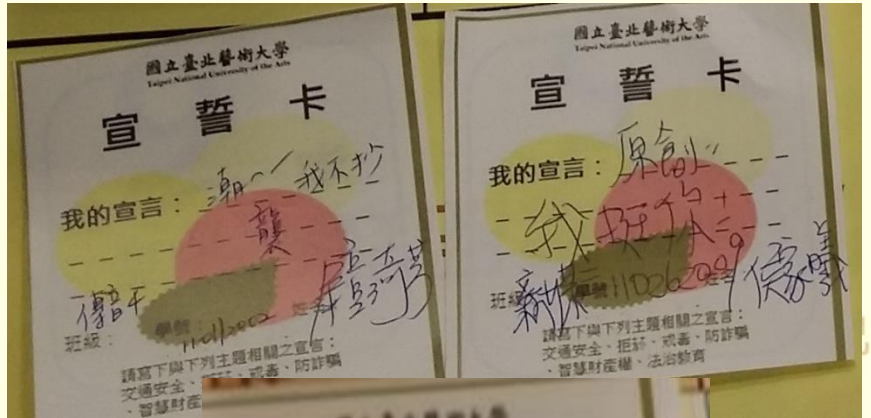 國立臺北藝術大學
Taipei National University of the Arts
宣誓卡
我的宣言：潮～我不抄
襲
班級：
學號：
請寫下與下列主題相關之宣言：
交通安全、拒菸、戒毒、防詐騙
、智慧財產
國立臺北藝術大學
Taipei National University of the Arts
宣誓卡
我的宣言：原創
我挺你
班級
學號
請寫下與下列主題相關之宣言：
交通安全、拒菸、戒毒、防詐騙
、智慧財產權、法治教育